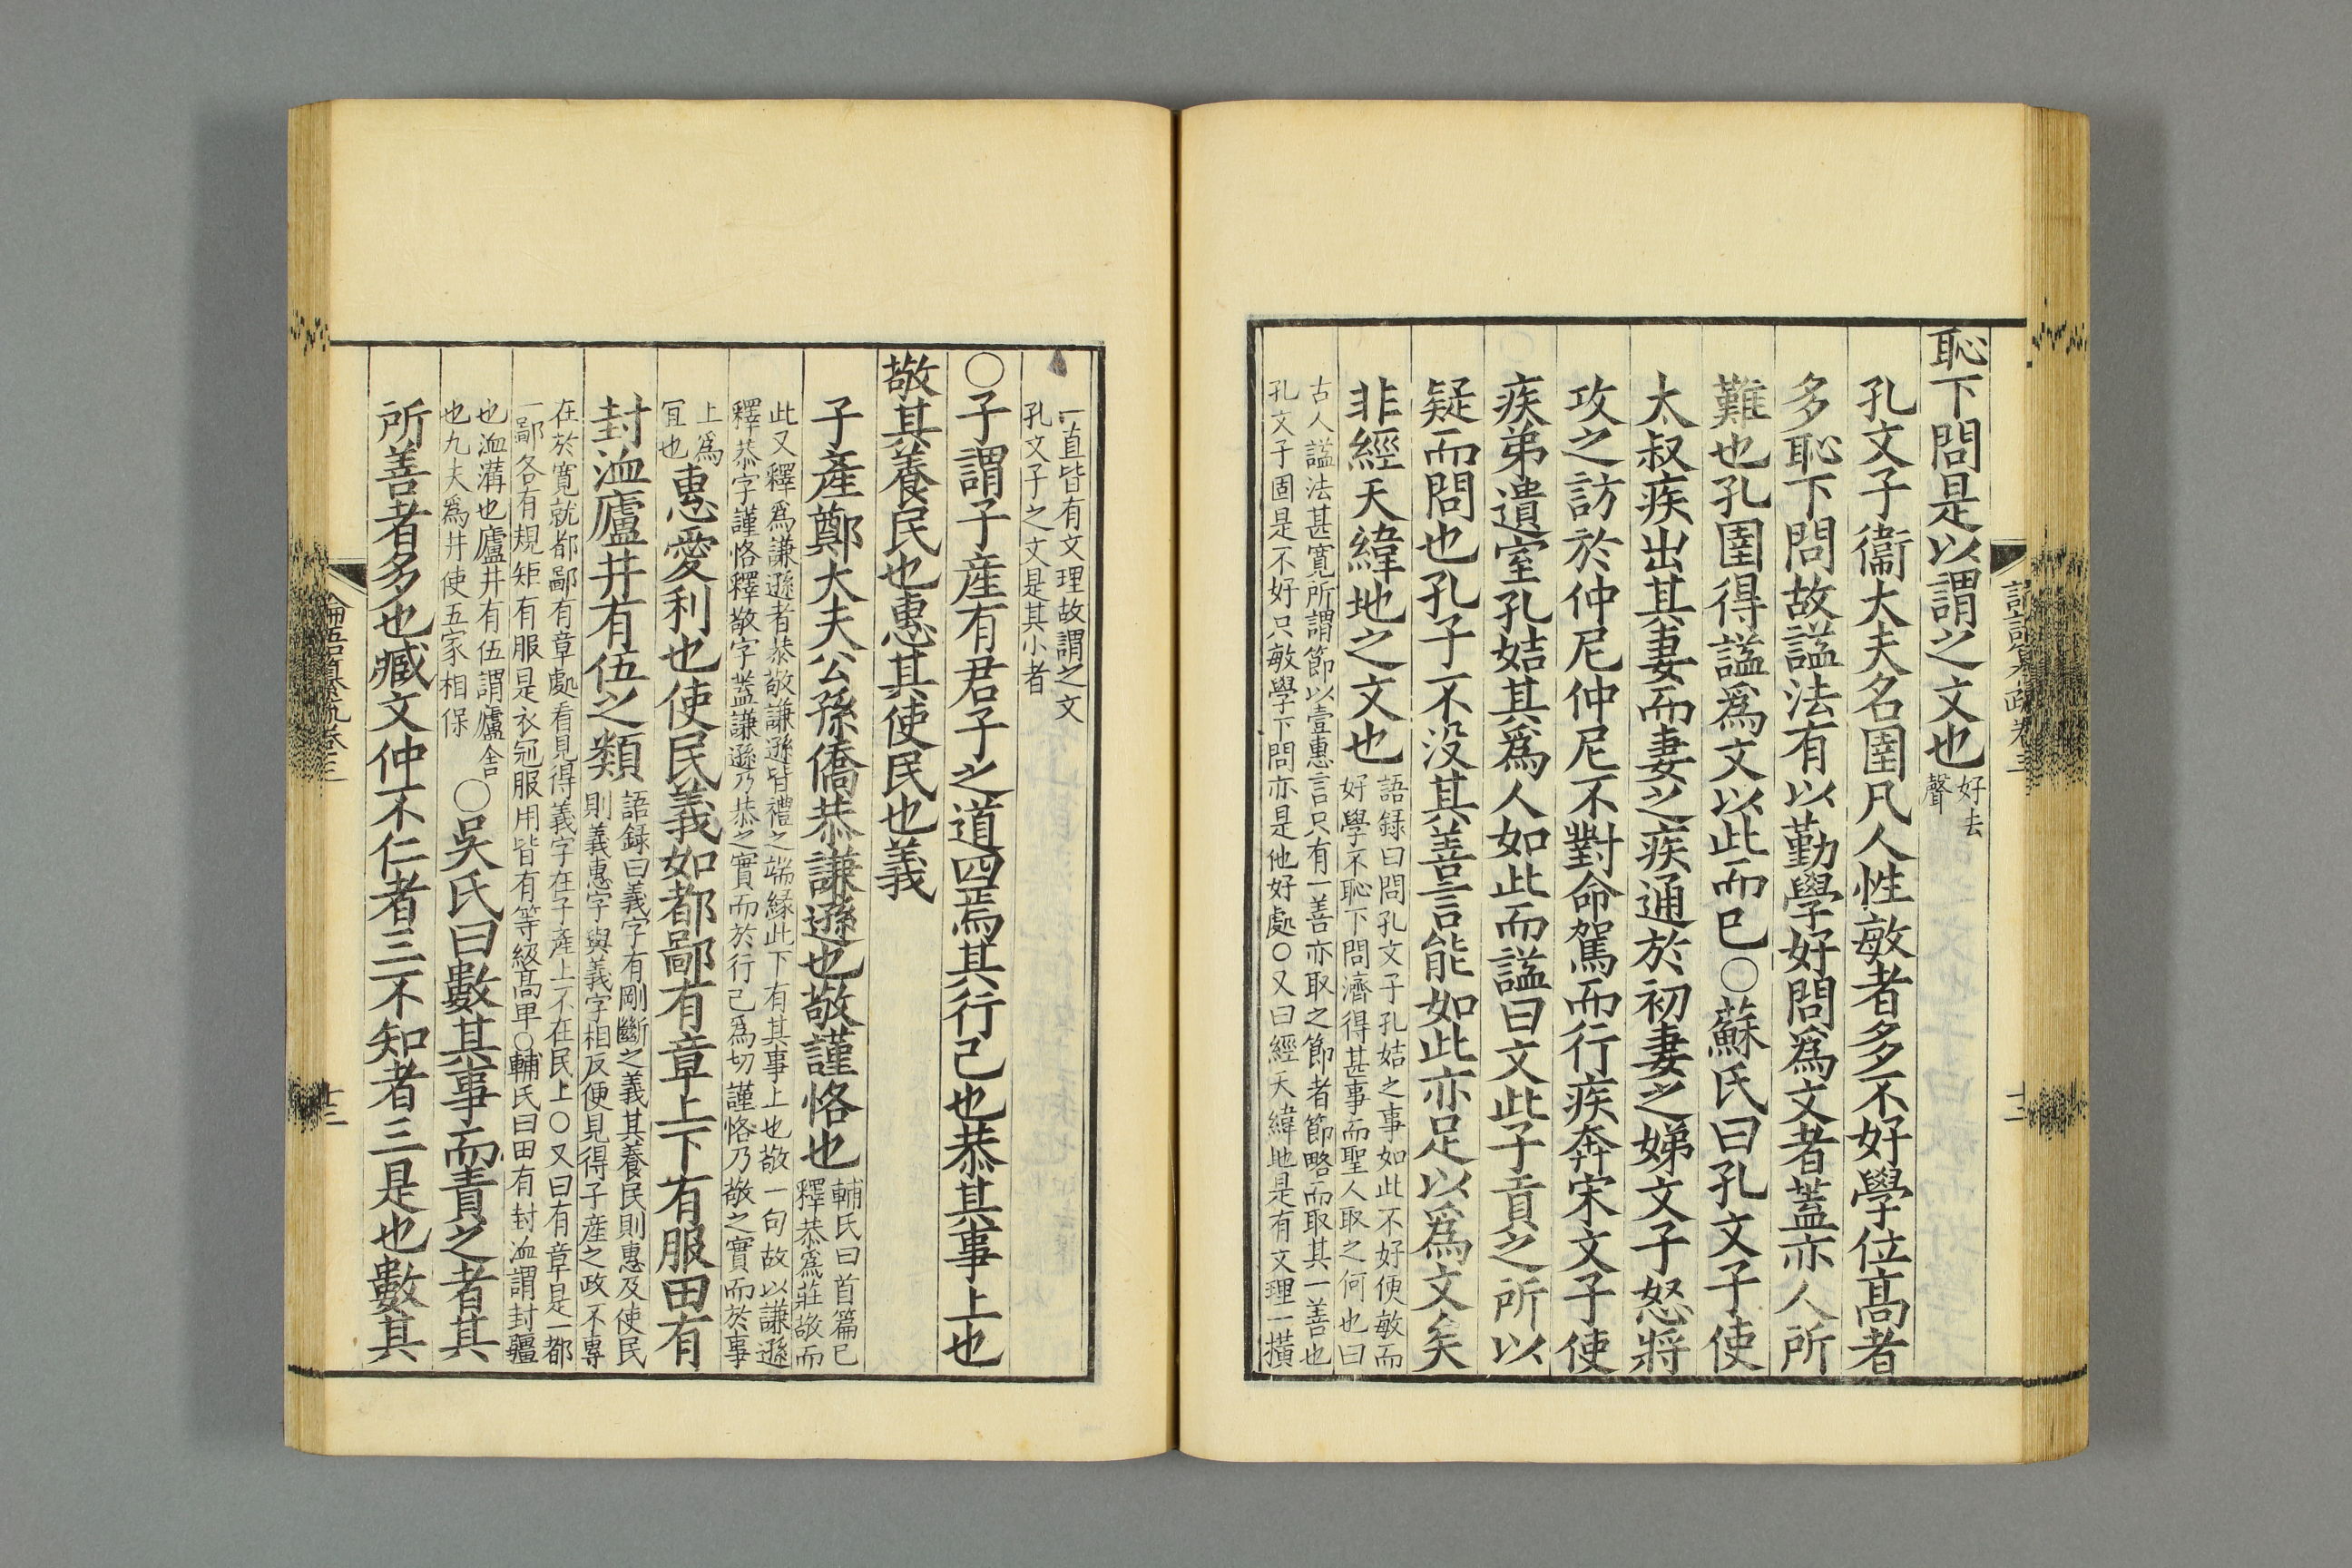 恥下問是以謂之文也好去
聲
孔文子衞大夫名圉凡人性敏者多不好學位髙者
多恥下問故謚法有以勤學好問爲文者蓋亦人所
難也孔圉得謚爲文以此而已○蘇氏曰孔文子使
太叔疾出其妻而妻之疾通於初妻之娣文子怒將
攻之訪於仲尼仲尼不對命駕而行疾奔宋文子使
疾弟遺室孔姞其爲人如此而謚曰文此子貢之所以
疑而問也孔子不没其善言能如此亦足以爲文矣
非經天緯地之文也
語録曰問孔文子孔姞之事如此不好便敏而
好學不恥下問濟得甚事而聖人取之何也曰
古人謚法甚寛所謂節以壹惠言只有一善亦取之節者節略而取其一善也
孔文子固是不好只敏學下問亦是他好處○又曰經天緯地是有文理一横
一直皆有文理故謂之文
孔文子之文是其小者
○子謂子産有君子之道四焉其行己也恭其事上也
敬其養民也惠其使民也義
子產鄭大夫公孫僑恭謙遜也敬謹恪也
輔氏曰首篇已
釋恭爲莊敬而
此又釋爲謙遜者恭敬謙遜皆禮之端縁此下有其事上也敬一句故以謙遜
釋恭字謹恪釋敬字蓋謙遜乃恭之實而於行己爲切謹恪乃敬之實而於事
上爲
冝也
惠愛利也使民義如都鄙有章上下有服田有
封洫廬井有伍之類
語録曰義字有剛斷之義其養民則惠及使民
則義惠字與義字相反便見得子産之政不專
在於寛就都鄙有章處看見得義字在子產上不在民上○又曰有章是一都
一鄙各有規矩有服是衣冠服用皆有等級髙卑○輔氏曰田有封洫謂封疆
也洫溝也廬井有伍謂廬舎
也九夫爲井使五家相保
○吳氏曰數其事而責之者其
所善者多也臧文仲不仁者三不知者三是也數其
論語纂疏卷三
十二